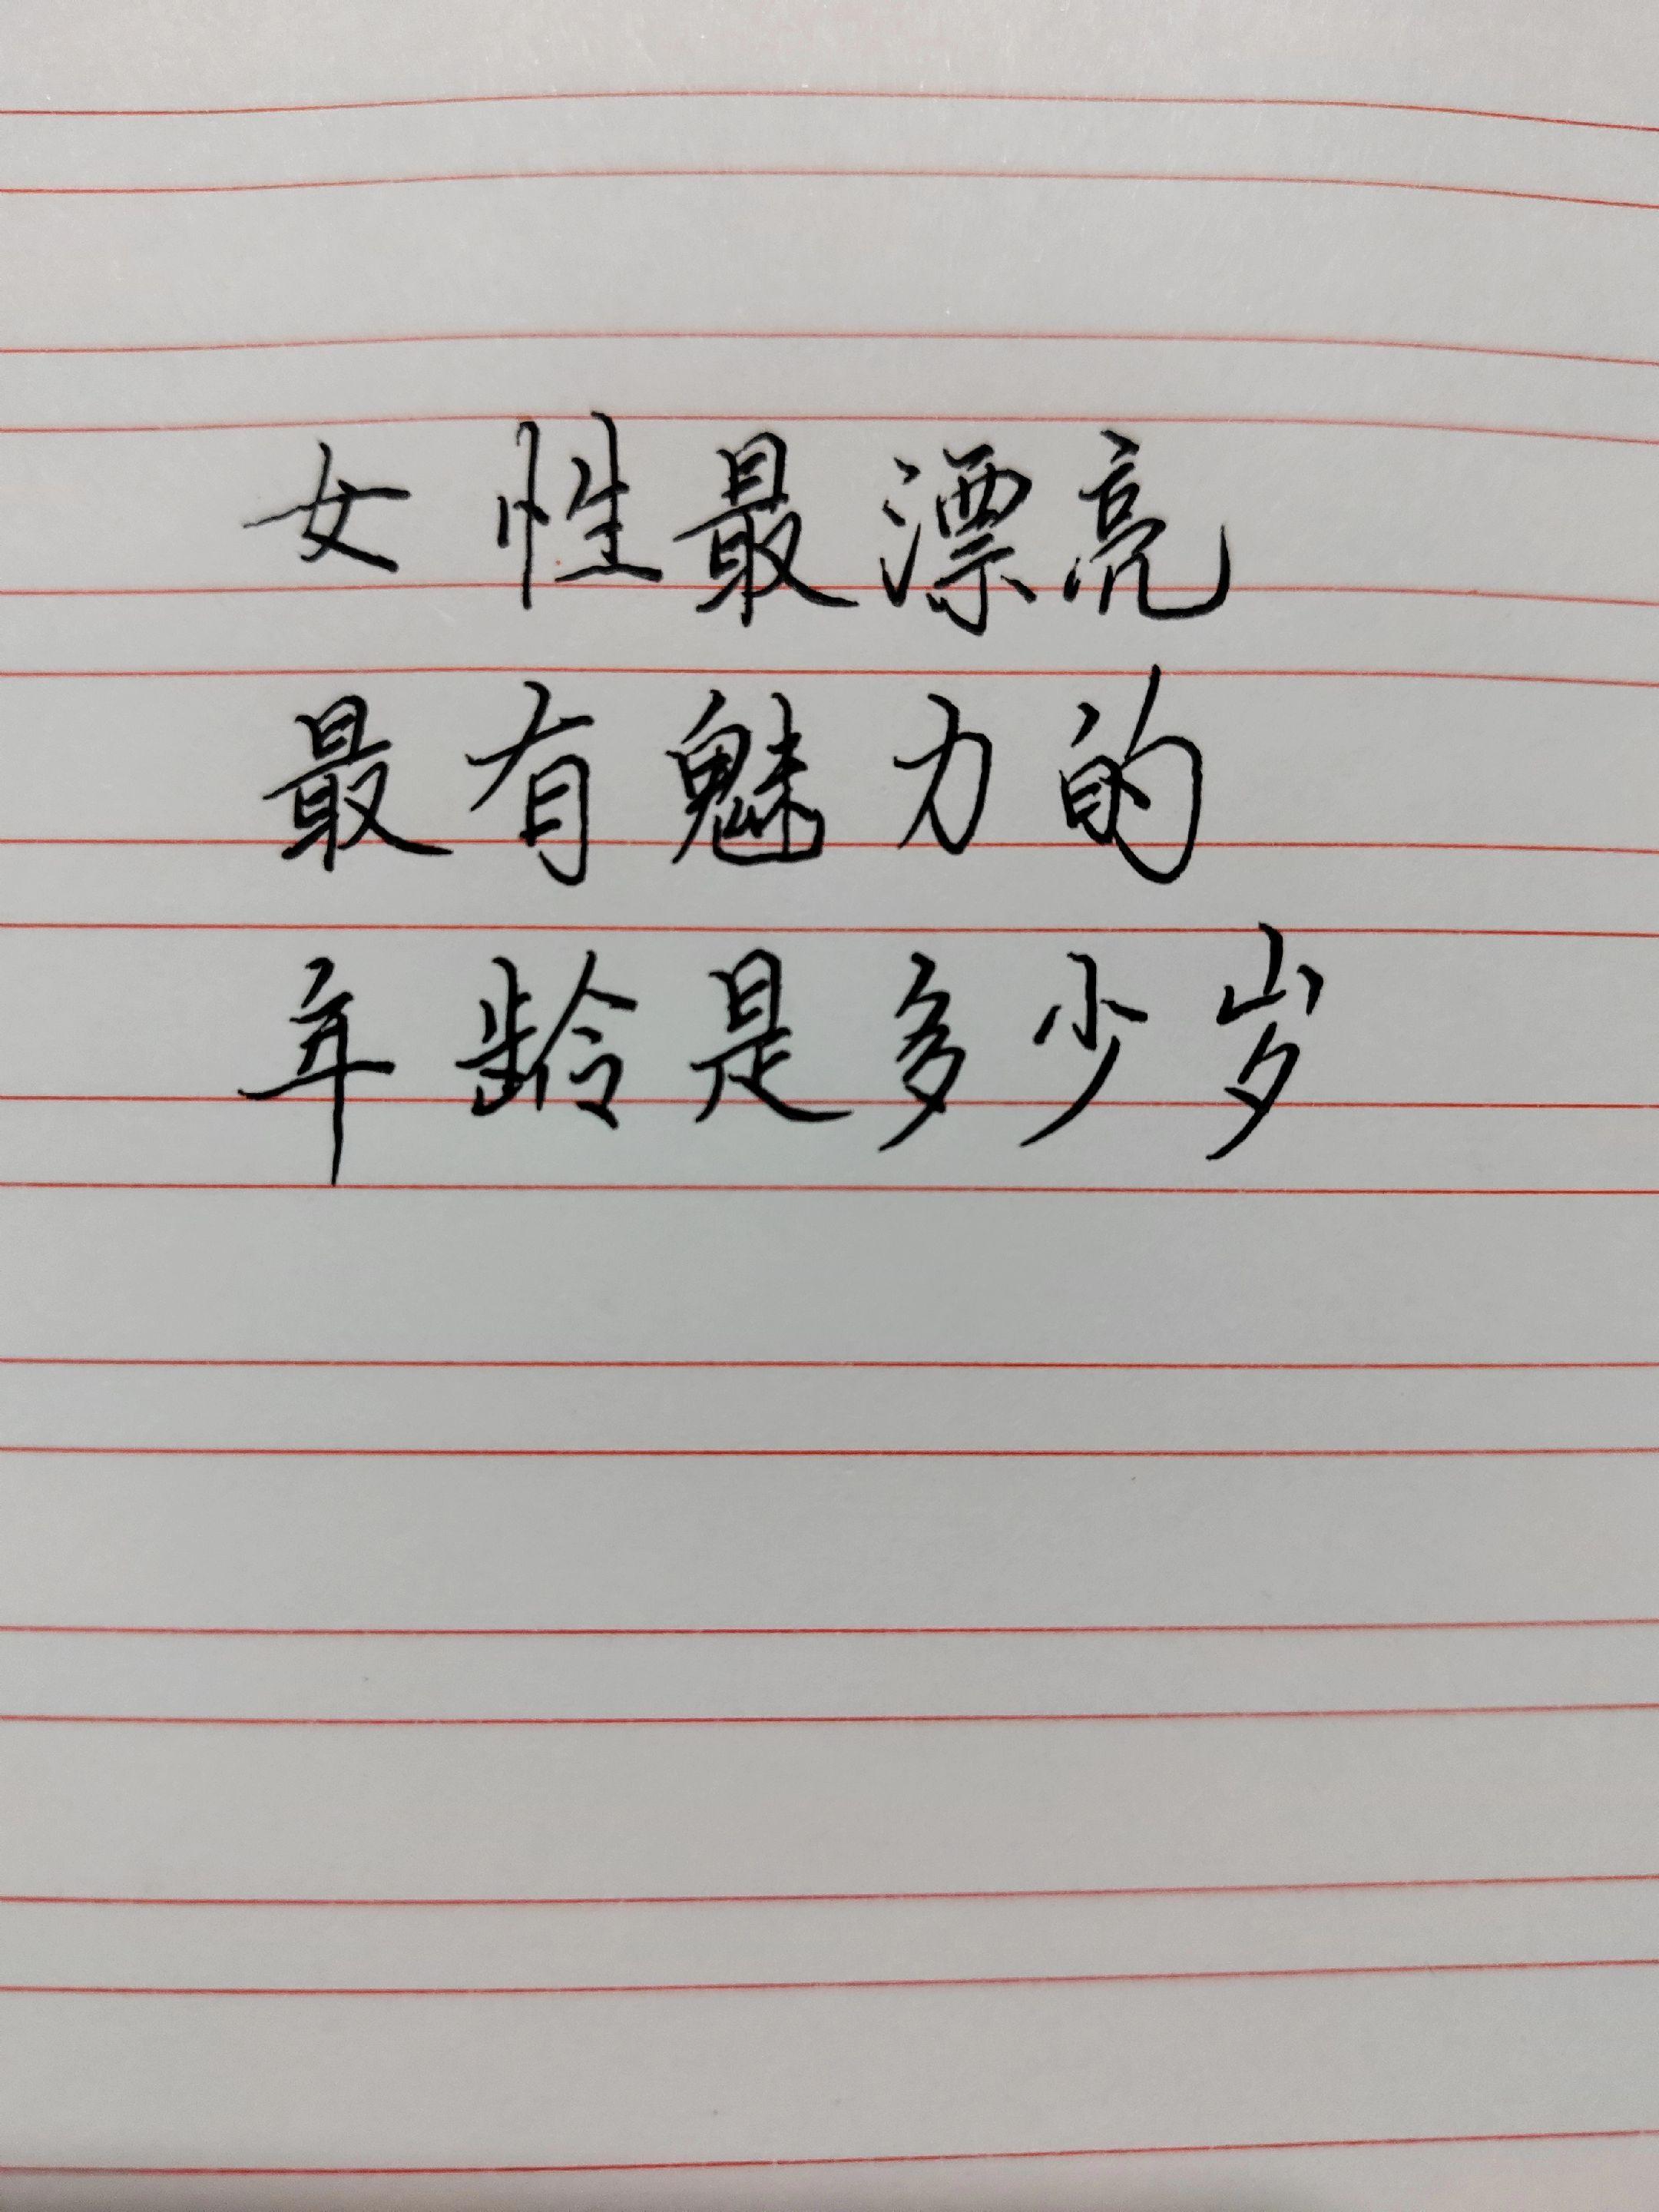 女性最漂亮
最有魅力的
年龄是多少岁